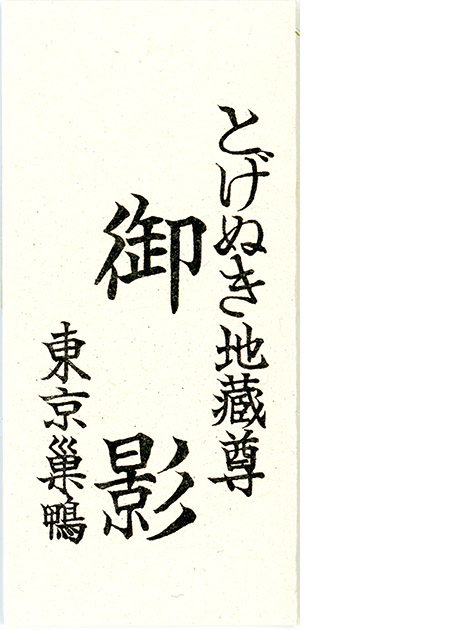 とげぬき地蔵尊
御影
東京巣鴨